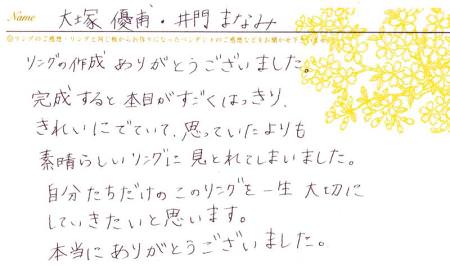 Name 大塚 優甫・井門 まなみ
◎リングのご感想・リングと同じ板からお作りになったペンダントのご感想などをお聞かせ下さいませ
リングの作成 ありがとうございました。
完成すると 木目がすごくはっきり、
きれいにでていて、思っていたよりも
素晴らしいリングに 見とれてしまいました。
自分たちだけの このリングを 一生 大切に
していきたいと思います。
本当に ありがとうございました。